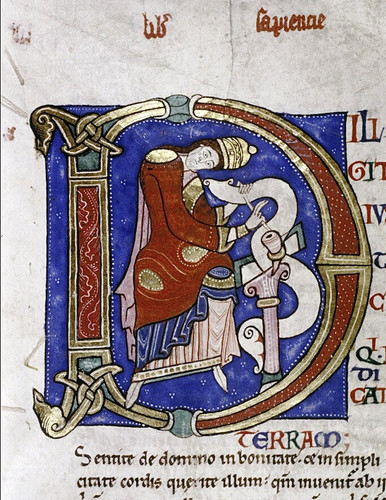 lib sapiencie
ILI
GIT
IV
T
C
Q.I
DI
CA
TERRAM;
Sentite de domino in bonitate. & in simpli
citate cordis querite illum; qm̄ invenit ab